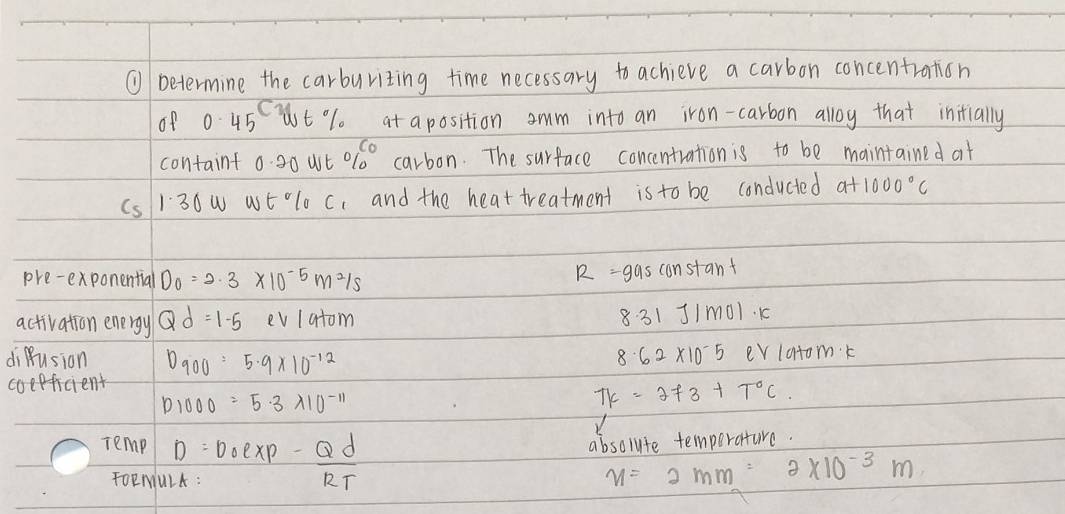 ① Determine the carburizing time necessary to achieve a carbon concentration
of 0.45 Cx wt % at a position 2mm into an iron-carbon alloy that initially
containt 0.20 wt % Co carbon. The surface concentration is to be maintained at
Cs 1.30 w wt % C, and the heat treatment is to be conducted at 1000°C
pre-exponential D0 = 2.3 x10⁻⁵ m²/s
R = gas constant
activation energy Qd = 1.5 ev/atom
8.31 J/mol.K
diffusion coefficient
D900 = 5.9x10⁻¹²
8.62 x10⁻⁵ ev/atom.k
D1000 = 5.3 x10⁻¹¹
Tk = 273 + T°C.
Temp D = D0 exp - Qd
absolute temperature.
FORMULA: RT
x = 2 mm = 2 x10⁻³ m